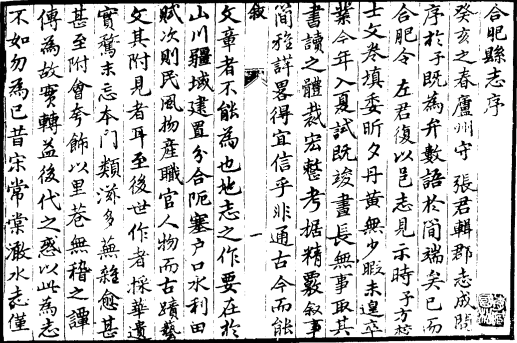 合肥縣志序
癸亥之春廬州守 張君輯郡志成問
序於予既為弁數語於簡端矣已而
合肥令 左君復以邑志見示時予方校
士文卷填委昕夕丹黃無少暇未遑卒
業今年入夏試既竣晝長無事取其
書讀之體裁宏整考据精覈敘事
簡雅詳畧得宜信乎非通古今而能
敘
一
文章者不能為也地志之作要在於
山川疆域建置分合阨塞户口水利田
賦次則民風物產職官人物而古蹟藝
文其附見者耳至後世作者採華遺
實騖末忘本門類滋多蕪雜愈甚
甚至附會夸飾以里巷無稽之譚
傳為故實轉益後代之惑以此為志
不如勿為已昔宋常棠澉水志僅